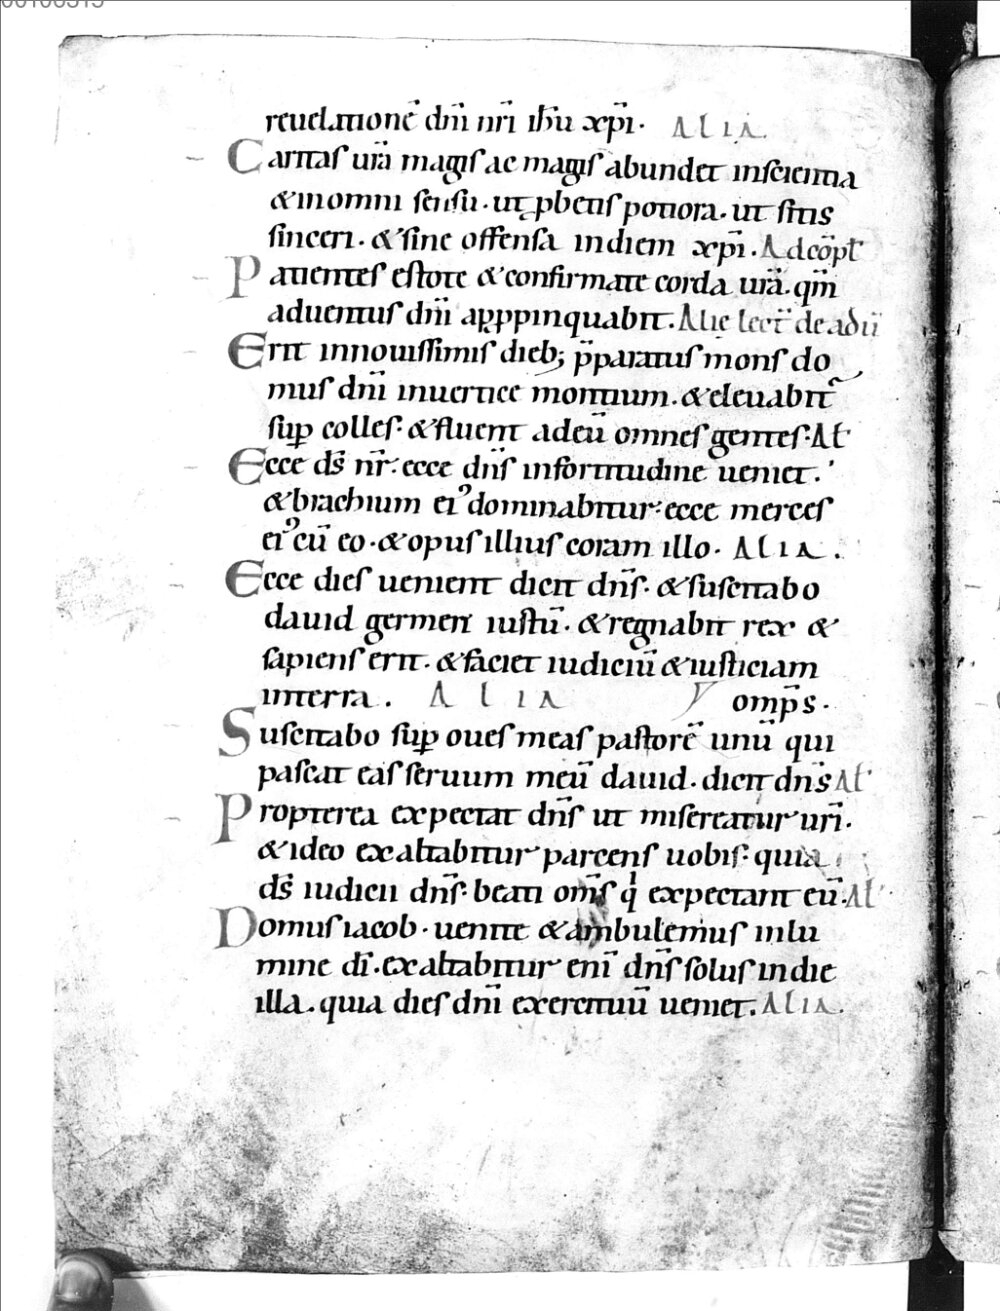 reuelatione̅ dn̅i nr̅i ihu̅ xp̅i· ALIA.
Caritas ur̅a magis ac magis abundet inscientia
& inomni sensu· ut ꝓbetis potiora· ut sitis
sinceri· & sine offensa indiem xp̅i· Adco̅pl̅
Patientes estote & confirmate corda ur̅a· qm̅
aduentus dn̅i apꝓpinquabit· Alie lect̅ de adu̅
Erit innouissimis dieb; p̅paratus mons do
mus dn̅i inuertice montium· & eleuabit̅
sup̲ colles· & fluent adeu̅ omnes gentes· Al̅
Ecce ds̅ nr̅· ecce dn̅s infortitudine ueniet·
& brachium eiꝰ dominabitur· ecce merces
eiꝰ cu̅ eo· & opus illius coram illo· ALIA.
Ecce dies uenient dicit dn̅s· & suscitabo
dauid germen iustu̅· & regnabit rex &
sapiens erit· & faciet iudiciu̅ & iusticiam
interra. ALIA omp̅s·
Suscitabo sup̲ oues meas pastore̅ unu̅ qui
pascat eas seruum meu̅ dauid· dicit dn̅s Al̅
Propterea expectat dn̅s ut misereatur uri̅·
& ideo exaltabitur parcens uobis· quia
ds̅ iudicii dn̅s· beati om̅s qͥ expectant eu̅· Al̅
Domus iacob· uenite & ambulemus inlu
mine di̅· exaltabitur eni̅ dn̅s solus indie
illa· quia dies dn̅i exercituu̅ ueniet· ALIA.